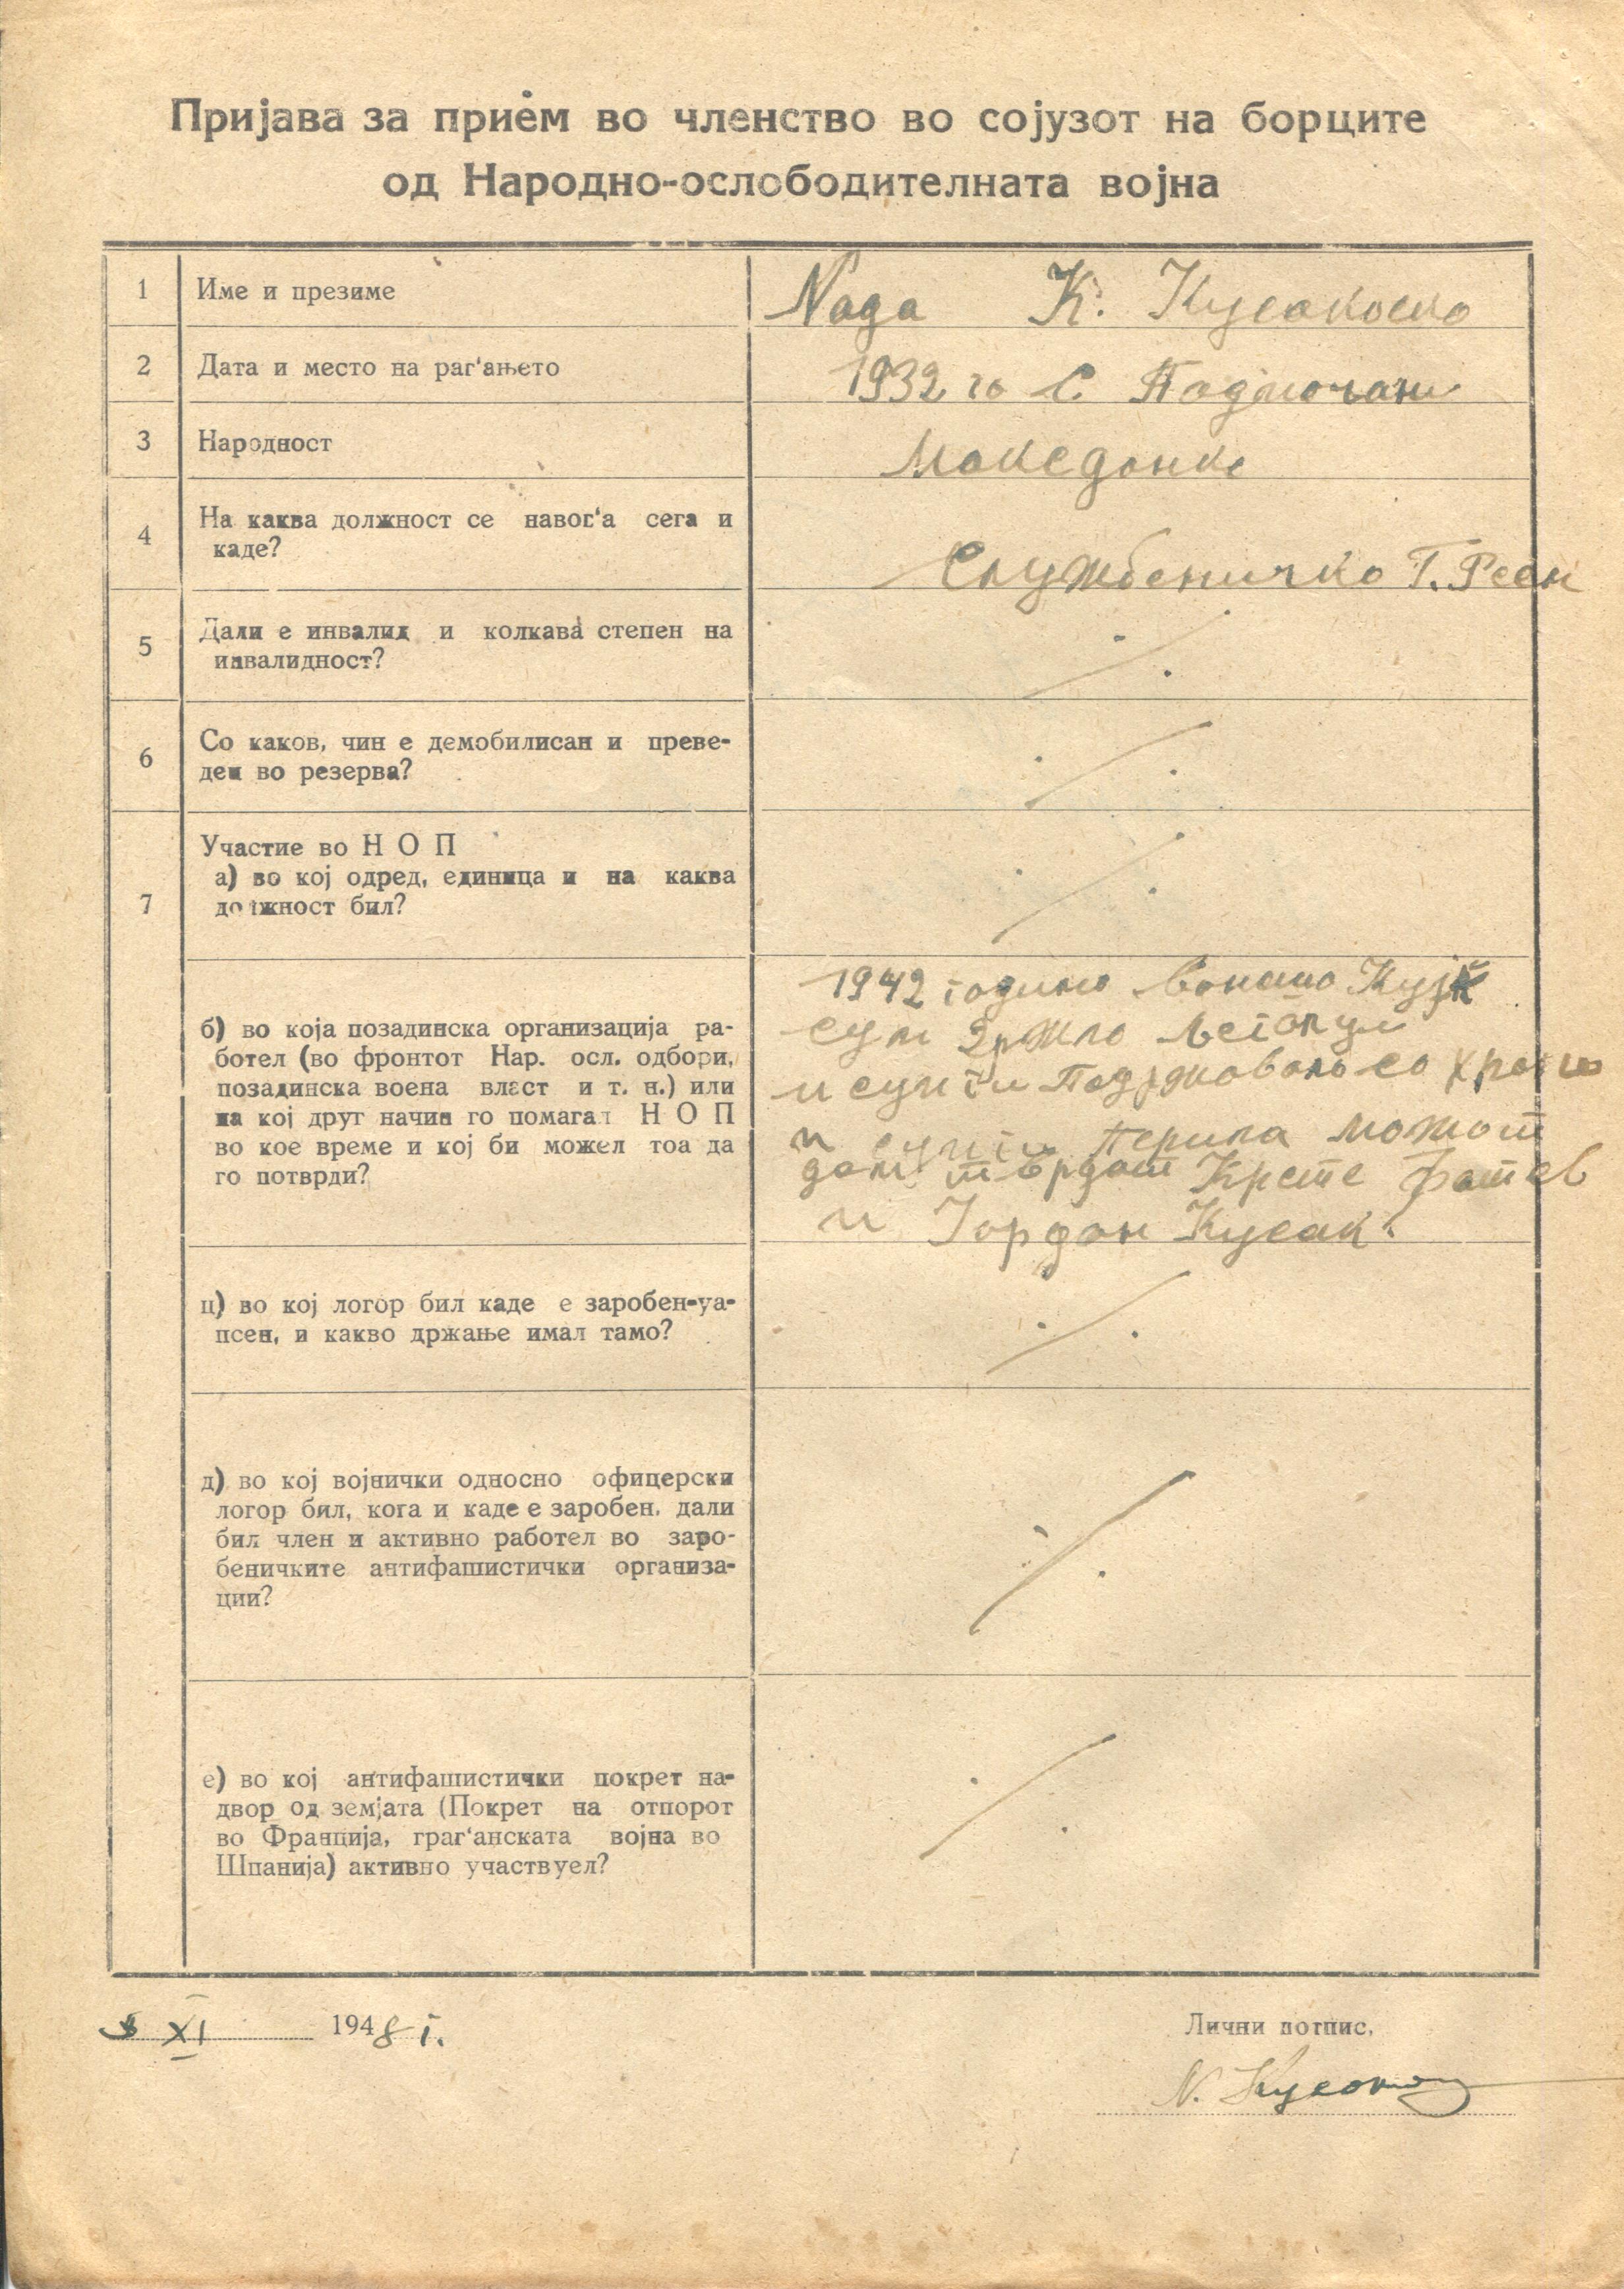 Пријава за прием во членство во сојузот на борците
од Народно-ослободителната војна
1 Име и презиме Nада К. Кусакоска
2 Дата и место на раг'ањето 1932 го С. Подмочани
3 Народност Македонка
4 На каква должност се навог'а сега и
каде? Службеничка Г. Ресен
5 Дали е инвалид и колкава степен на
инвалидност? ./.
6 Со каков, чин е демобилисан и преве-
ден во резерва? ./.
7 Участие во Н О П
а) во кој одред, единица и на каква
должност бил? ./.
б) во која позадинска организација ра-
ботел (во фронтот Нар. осл. одбори,
позадинска воена власт и т. н.) или
на кој друг начин го помагал Н О П
во кое време и кој би можел тоа да
го потврди?
1942 година
сум држала
и сум ги подржовала со храна
и сум ги перила можат
да твърдат Крсте Фатев
и Јордан Кусак.
ц) во кој логор бил каде е заробен-уа-
псен, и какво држање имал тамо? ./.
д) во кој војнички односно офицерски
логор бил, кога и каде е заробен, дали
бил член и активно работел во заро-
беничките антифашистички организа-
ции? ./.
е) во кој антифашистички покрет на-
двор од земјата (Покрет на отпорот
во Франција, граг'анската војна во
Шпанија) активно участвуел? ./.
XI 1948 г.
Лични потпис,
N.